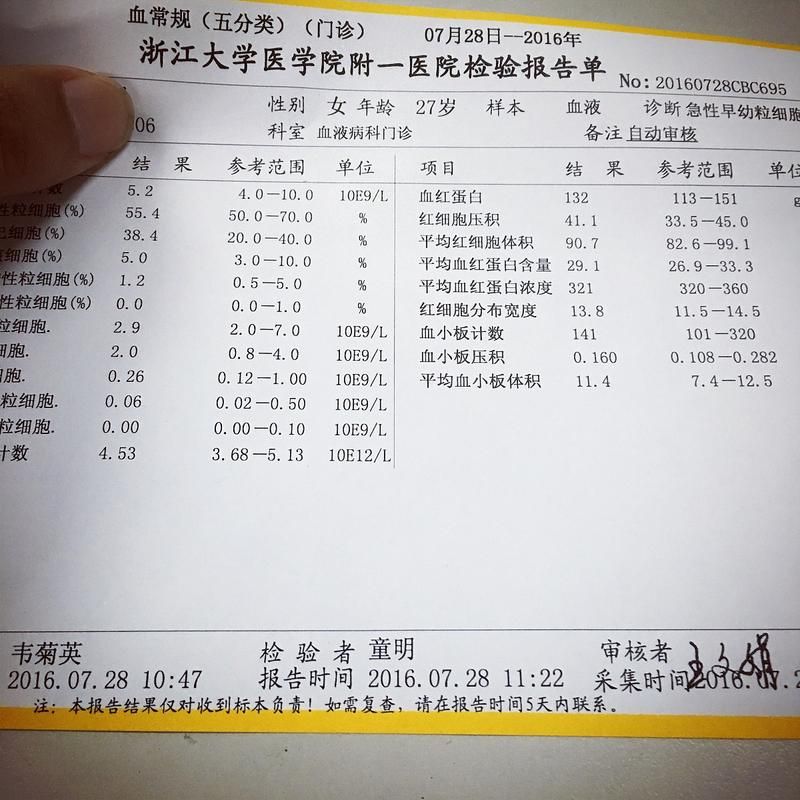 血常规（五分类）（门诊） 07月28日--2016年
浙江大学医学院附一医院检验报告单
No: 20160728CBC695
性别 女 年龄 27岁 样本 血液 诊断 急性早幼粒细胞
06 科室 血液病科门诊 备注 自动审核
结 果 参考范围 单位 项目 结 果 参考范围 单位
数 5.2 4.0—10.0 10E9/L 血红蛋白 132 113—151 g
性粒细胞(%) 55.4 50.0—70.0 % 红细胞压积 41.1 33.5—45.0
细胞(%) 38.4 20.0—40.0 % 平均红细胞体积 90.7 82.6—99.1
细胞(%) 5.0 3.0—10.0 % 平均血红蛋白含量 29.1 26.9—33.3
性粒细胞(%) 1.2 0.5—5.0 % 平均血红蛋白浓度 321 320—360
性粒细胞(%) 0.0 0.0—1.0 % 红细胞分布宽度 13.8 11.5—14.5
粒细胞. 2.9 2.0—7.0 10E9/L 血小板计数 141 101—320
细胞. 2.0 0.8—4.0 10E9/L 血小板压积 0.160 0.108—0.282
细胞. 0.26 0.12—1.00 10E9/L 平均血小板体积 11.4 7.4—12.5
粒细胞. 0.06 0.02—0.50 10E9/L
粒细胞. 0.00 0.00—0.10 10E9/L
计数 4.53 3.68—5.13 10E12/L
韦菊英 检 验 者 童明 审核者
2016.07.28 10:47 报告时间 2016.07.28 11:22 采集时间 2016.07.2
注: 本报告结果仅对收到标本负责! 如需复查, 请在报告时间5天内联系。